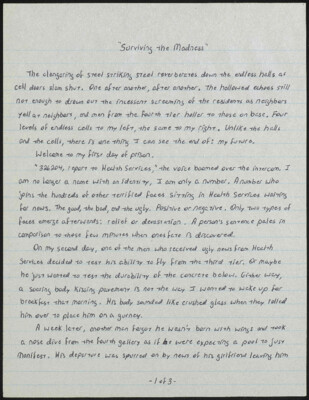 "Surviving the Madness"
The clangoring of steel striking steel reverberates down the endless halls as
cell doors slam shut. One after another, after another. The hallowed echoes still
not enough to drown out the incessant screaming of the residents as neighbors
yell at neighbors, and men from the fourth tier holler to those on base. Four
levels of endless cells to my left, the same to my right. Unlike the halls
and the cells, there is one thing I can see the end of: my future.
Welcome to my first day of prison.
report to Health Services," the voice boomed over the intercom. I
am no longer a name with an identity, I am only a number. A number who
joins the hundreds of other terrified faces sitting in Health Services waiting
for news. The good, the bad, and the ugly. Positive or negative. Only two types of
faces emerge afterwards: relief or devastation. A person's sentence pales in
comparison to those few minutes when ones fate is discovered.
On my second day, one of the men who received ugly news from Health
Services decided to test his ability to fly from the third tier. Or maybe
he just wanted to test the durability of the concrete below. Either way,
a soaring body kissing pavement is not the way I wanted to wake up for
breakfast that morning. His body sounded like crushed glass when they rolled
him over to place him on a gurney.
A week later, another man forgot he wasn't born with wings and took
a nose dive from the fourth gallery as if he were expecting a pool to just
manifest. His departure was spurred on by news of his girlfriend leaving him
-1 of 3-